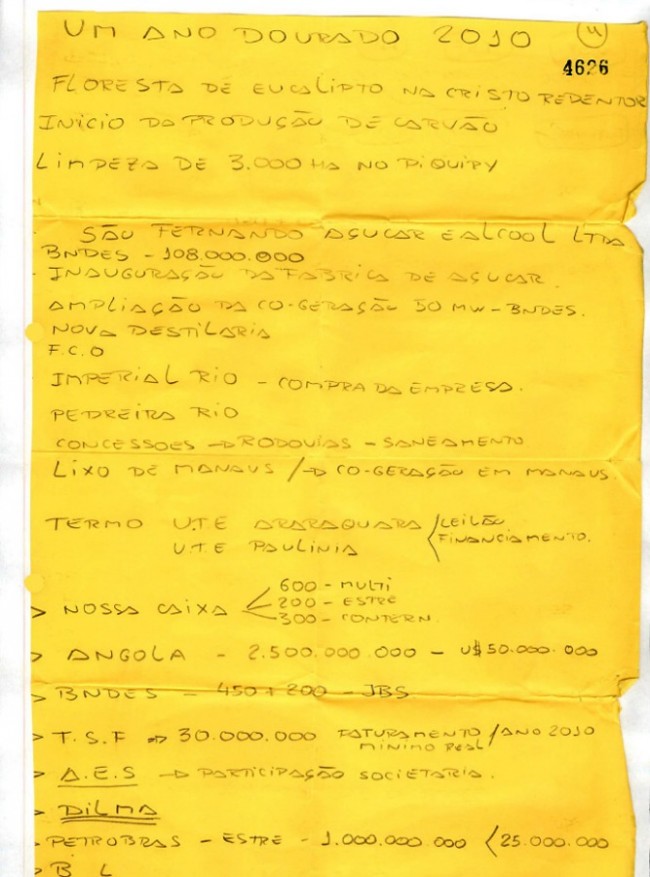 UM ANO DOURADO 2010
4626
FLORESTA DE EUCALIPTO NA CRISTO REDENTOR
INICIO DA PRODUÇÃO DE CARVÃO
LIMPEZA DE 3.000 HA NO PIQUIPY
SÃO FERNANDO AÇUCAR E ALCOOL LTDA
BNDES - 108.000.000
INAUGURAÇÃO DA FABRICA DE AÇUCAR.
AMPLIAÇÃO DA CO-GERAÇÃO 50 MW - BNDES.
NOVA DESTILARIA
F.C.O
IMPERIAL RIO - COMPRA DA EMPRESA.
PEDREIRA RIO
CONCESSOES → RODOVIAS - SANEAMENTO
LIXO DE MANAUS / → CO-GERAÇÃO EM MANAUS.
TERMO U.T.E ARARAQUARA / LEILÃO
U.T.E PAULINIA \ FINANCIAMENTO.
600 - MULTI
> NOSSA CAIXA < 200 - ESTRE
300 - CONTERN
> ANGOLA - 2.500.000.000 - U$ 50.000.000
> BNDES - 450 + 200 - JBS
> T.S.F → 30.000.000 FATURAMENTO / ANO 2010
MINIMO REAL
> A.E.S → PARTICIPAÇÃO SOCIETARIA.
> DILMA
PETROBRAS - ESTRE - 1.000.000.000 < 25.000.000